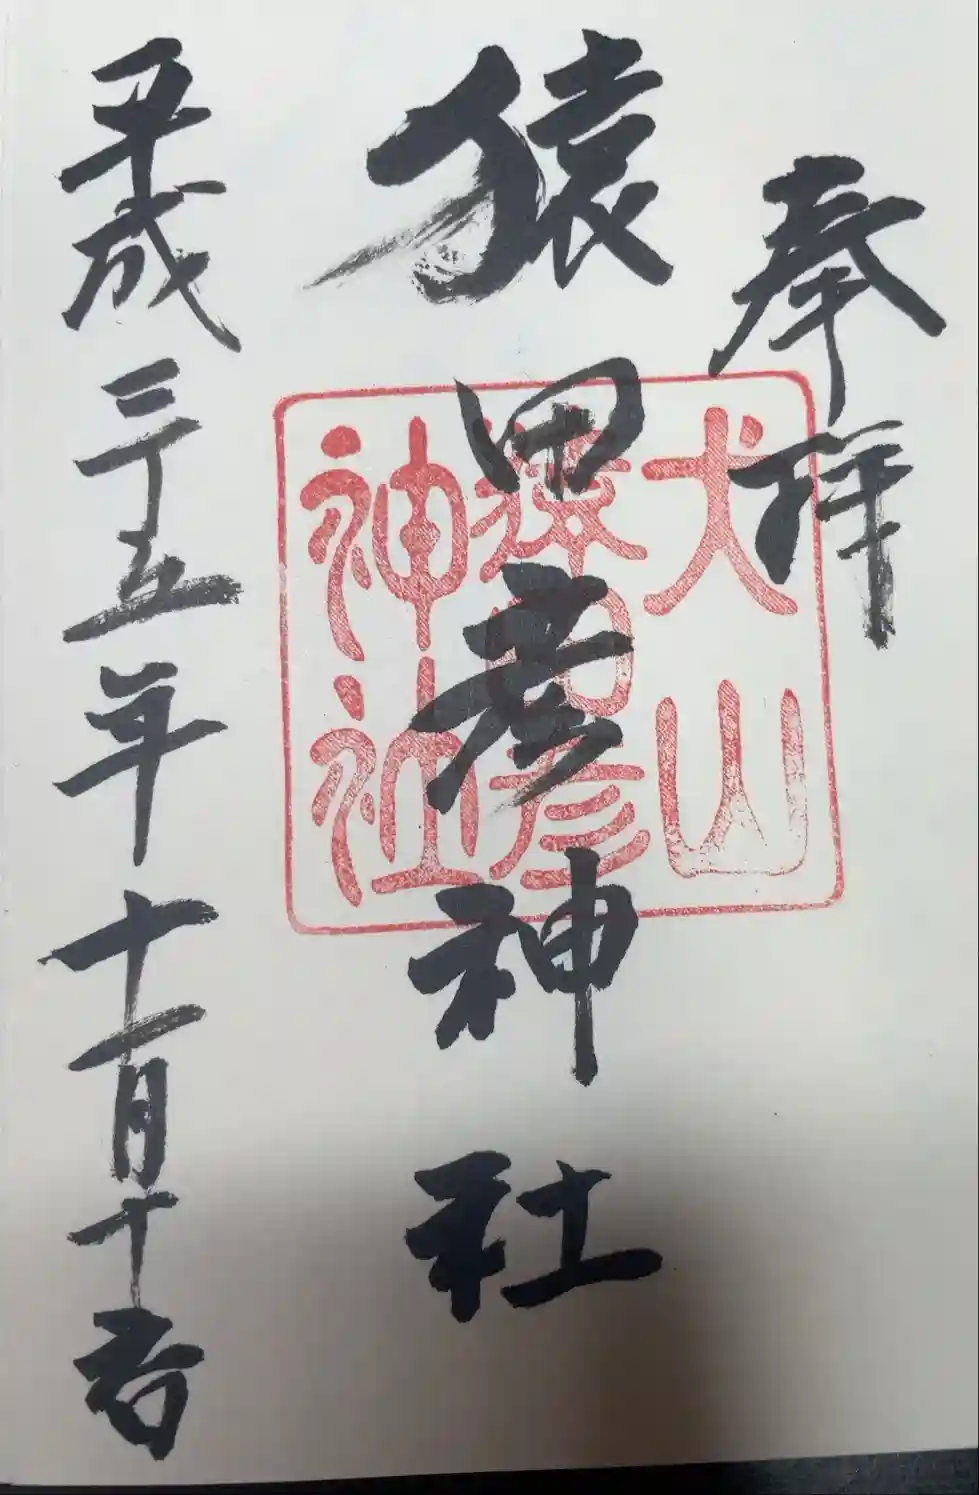 奉拝
猿田彦神社
犬山
猿田彦
神社
平成二十五年十一月十日